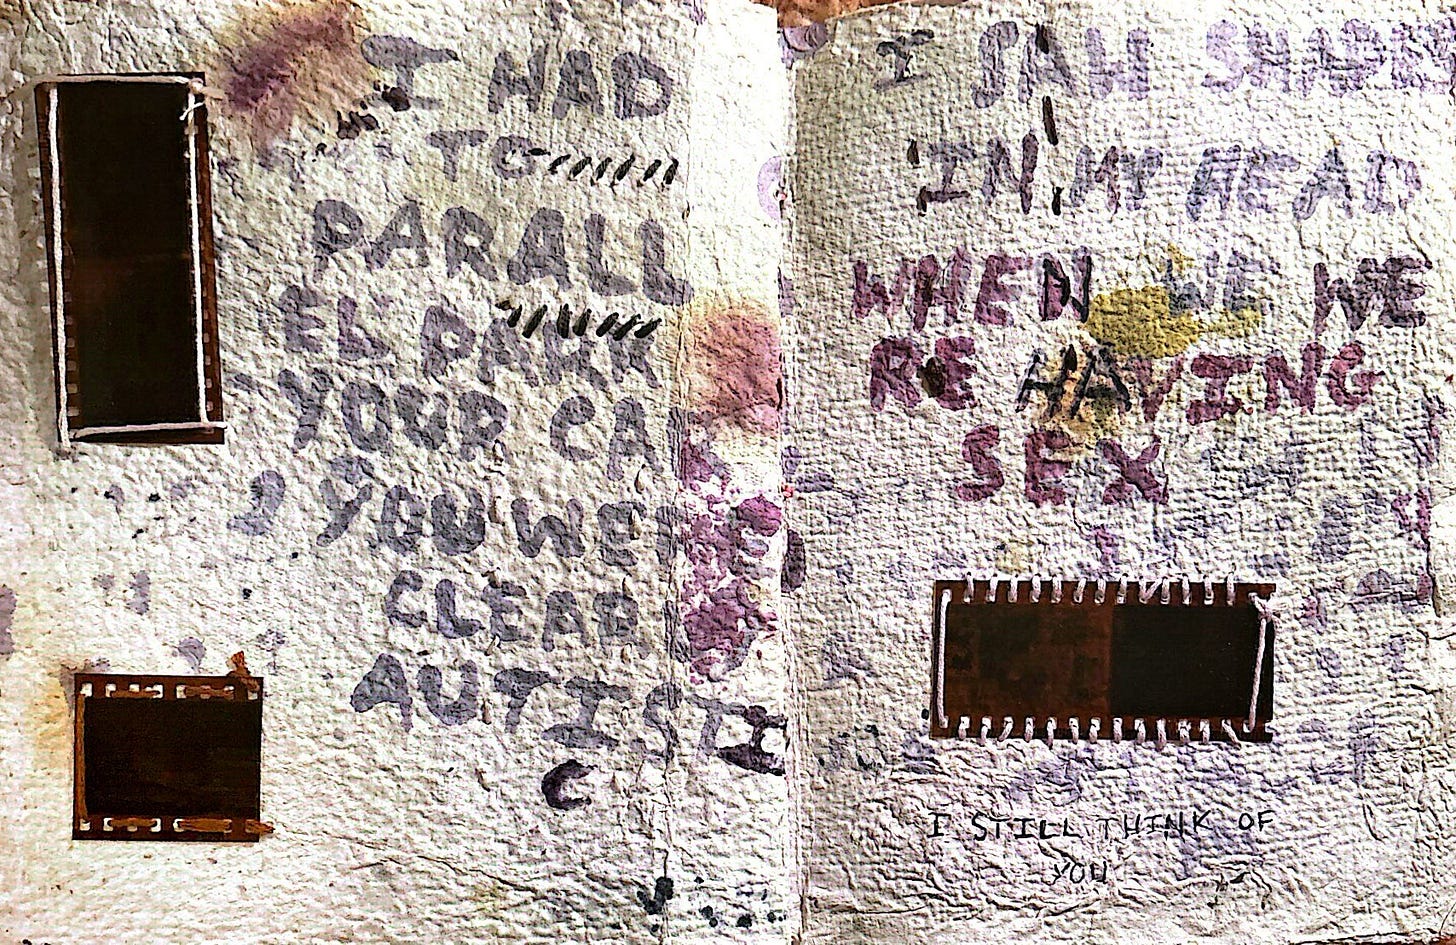 I HAD
TO
PARALL
EL PARK
YOUR CA
YOU WE
CLEAR
AUTISTI
C
I SAW SHAPES
IN MY HEAD
WHEN WE WE
RE HAVING
SEX
I STILL THINK OF
YOU